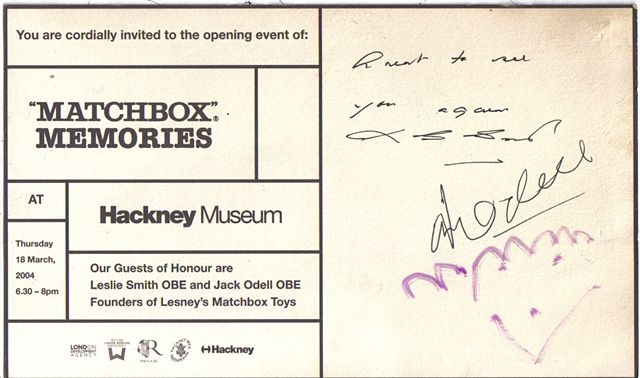 You are cordially invited to the opening event of:
"MATCHBOX"®
MEMORIES
AT
Hackney Museum
Thursday
18 March,
2004
6.30 – 8pm
Our Guests of Honour are
Leslie Smith OBE and Jack Odell OBE
Founders of Lesney's Matchbox Toys
LONDON
DEVELOPMENT
AGENCY
Hackney
Great to see
you again
Odell